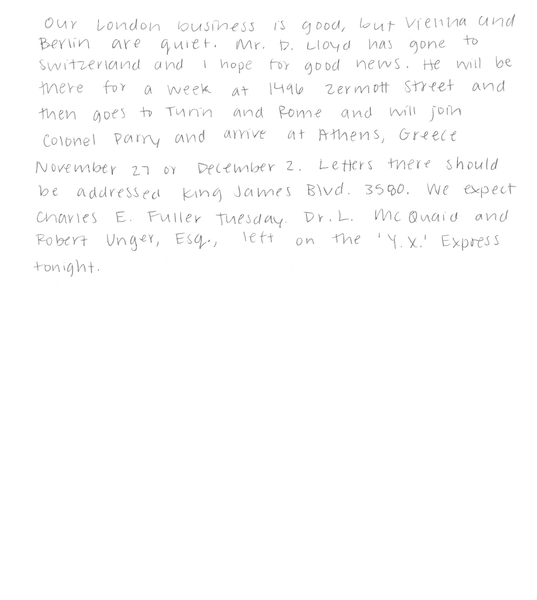 Our London business is good, but Vienna and
Berlin are quiet. Mr. D. Lloyd has gone to
Switzerland and I hope for good news. He will be
there for a week at 1496 Zermott Street and
then goes to Turin and Rome and will join
Colonel Parry and arrive at Athens, Greece
November 27 or December 2. Letters there should
be addressed King James Blvd. 3580. We expect
Charles E. Fuller Tuesday. Dr. L. McQuaid and
Robert Unger, Esq., left on the 'Y.X.' Express
tonight.